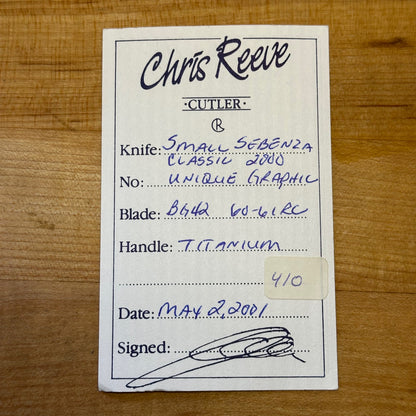 Chris Reeve
·CUTLER·
CR
Knife: SMALL SEBENZA
CLASSIC 2000
No: UNIQUE GRAPHIC
Blade: BG42 60-61RC
Handle: TITANIUM
410
Date: MAY 2, 2001
Signed: